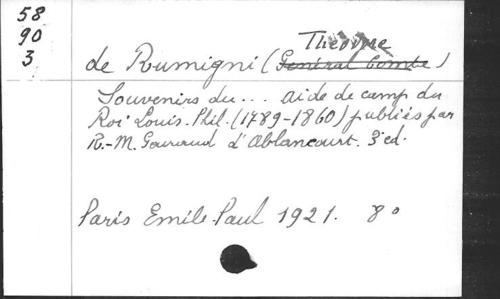 58
90
3
Théorime
de Rumigni (Général Comte)
Souvenirs du... aide de camp du
Roi Louis. Phil. (1789-1860) publiés par
R.-M. Gouraud d'Ablancourt. 3e éd.
Paris Emile-Paul 1921. 8o